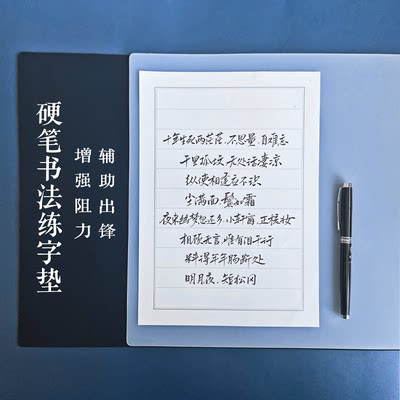 硬笔书法练字垫
辅助出锋
增强阻力
十年生死两茫茫,不思量,自难忘
千里孤坟,无处话凄凉
纵使相逢应不识
尘满面,鬓如霜
夜来幽梦忽还乡,小轩窗,正梳妆
相顾无言,惟有泪千行
料得年年肠断处
明月夜,短松冈